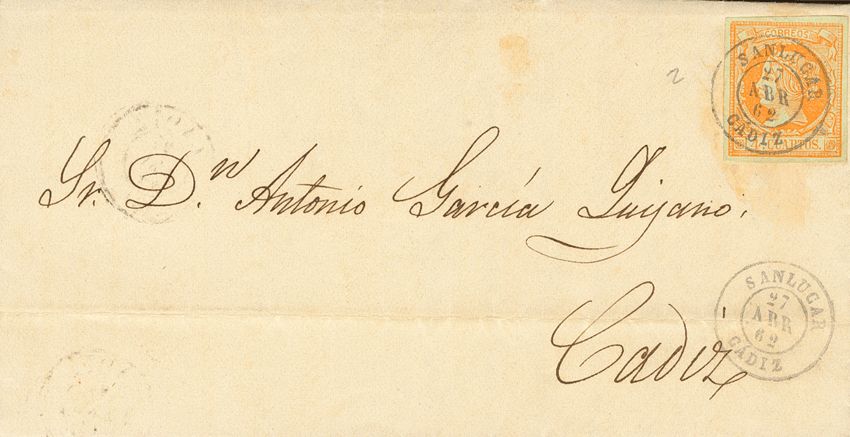 CORREOS
4 CUARTOS.
SANLUCAR
27
ABR
62
CÁDIZ
2
Sr. D.ⁿ Antonio García Quijano.
Cadiz
SANLUCAR
27
ABR
62
CÁDIZ